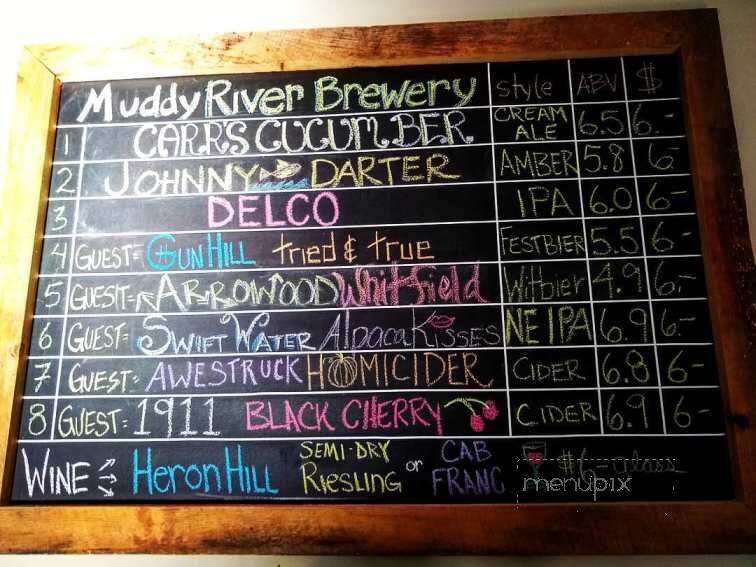 Muddy River Brewery style ABV $
1 CARR'S CUCUMBER CREAM ALE 6.5 6.-
2 JOHNNY DARTER AMBER 5.8 6-
3 DELCO IPA 6.0 6-
4 GUEST= GUN HILL tried & true FESTBIER 5.5 6-
5 GUEST= ARROWOOD Whitfield Witbier 4.9 6.-
6 GUEST= SWIFT WATER Alpaca KISSES NE IPA 6.9 6.-
7 GUEST= AWESTRUCK HOMICIDER CIDER 6.8 6-
8 GUEST= 1911 BLACK CHERRY CIDER 6.9 6-
WINE HERON HILL SEMI-DRY RIESLING or CAB FRANC $6- glass
menupix